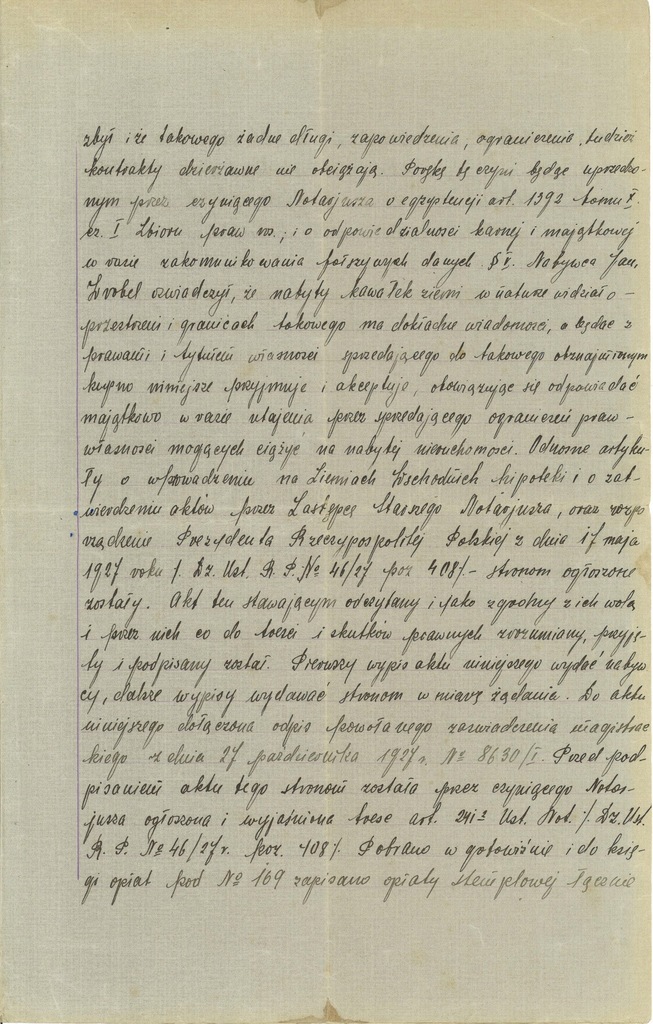 zbył i że takowego żadne długi, zapowiedzenia, ograniczenia, tudzież
kontrakty dzierżawne nie obciążają. Porękę tę czyni będąc uprzedzo-
nym przez czyniącego Notarjusza o egzystencji art. 1392 tomu X.
cz. I Zbioru praw ros.; i o odpowiedzialności karnej i majątkowej
w razie zakomunikowania fałszywych danych. § V. Nabywca Jan
Wrobel oświadczył, że nabyty kawałek ziemi w naturze widział o
przestrzeni i granicach takowego ma dokładne wiadomości, a będąc z
prawami i tytułem własności sprzedającego do takowego obznajmionym
kupno niniejsze przyjmuje i akceptuje, obowiązując się odpowiadać
majątkowo w razie utajenia przez sprzedającego ograniczeń praw-
własności mogących ciążyć na nabytej nieruchomości. Odnośne artyku-
ły o wprowadzeniu na Ziemiach Wschodnich hipoteki i o zat-
wierdzeniu aktów przez Zastępcę Starszego Notarjusza, oraz rozpo
rządzenie Prezydenta Rzeczypospolitej Polskiej z dnia 17 maja
1927 roku /. Dz. Ust. R. P. № 46/27 poz 408/.- stronom ogłoszone
zostały. Akt ten stawającym odczytany i jako zgodny z ich wolą
i przez nich co do treści i skutków prawnych zrozumiany, przyję-
ty i podpisany został. Pierwszy wypis aktu niniejszego wydać nabyw
cy, dalsze wypisy wydawać stronom w miarę żądania. Do aktu
niniejszego dołączona odpis powołanego zaświadczenia magistrac
kiego z dnia 27 października 1927 r. № 8630/I. Przed pod-
pisaniem aktu tego stronom została przez czyniącego Notar-
jusza ogłoszona i wyjaśniona treść art. 241² Ust. Not. /. Dz. Ust.
R. P. № 46/27 r. poz. 408/. Pobrano w gotowiźnie i do księ-
gi opłat pod № 169 zapisano opłaty stemplowej łącznie